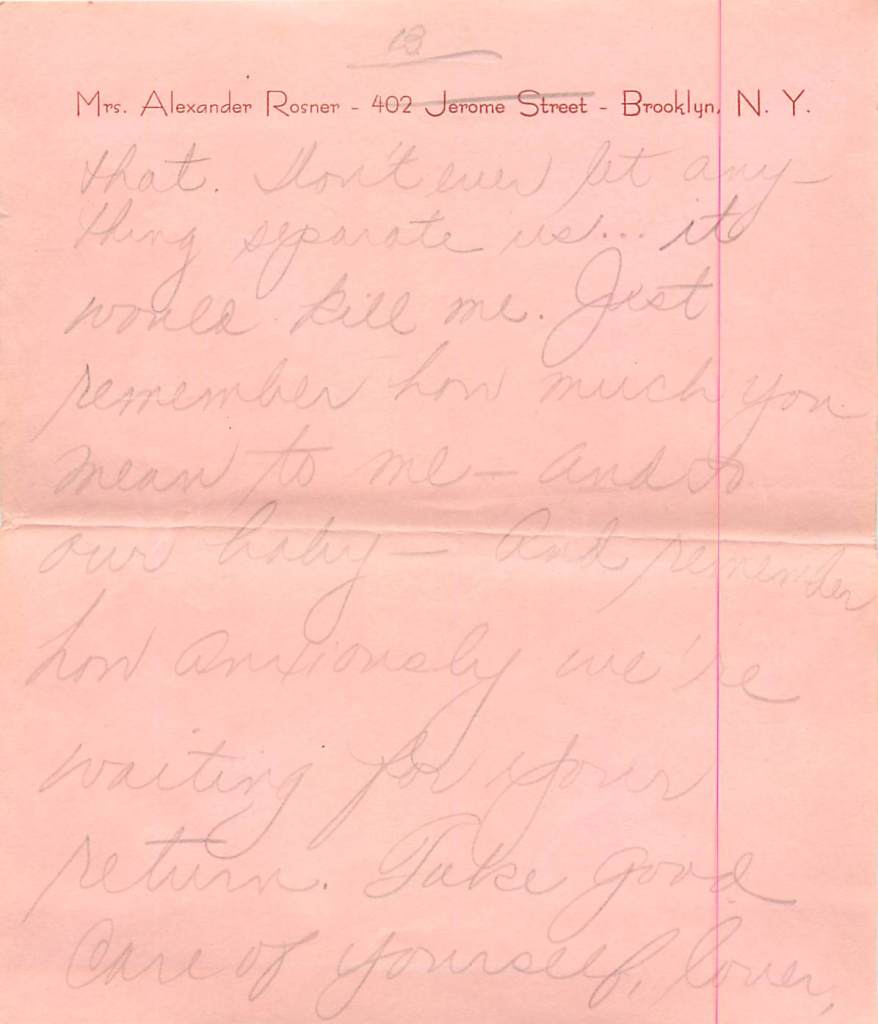 13
Mrs. Alexander Rosner - 402 Jerome Street - Brooklyn, N. Y.
that. Don't ever let any-
thing separate us... it
would kill me. Just
remember how much you
mean to me - and to
our baby - And remember
how anxiously we're
waiting for your
return. Take good
Care of yourself, lover,